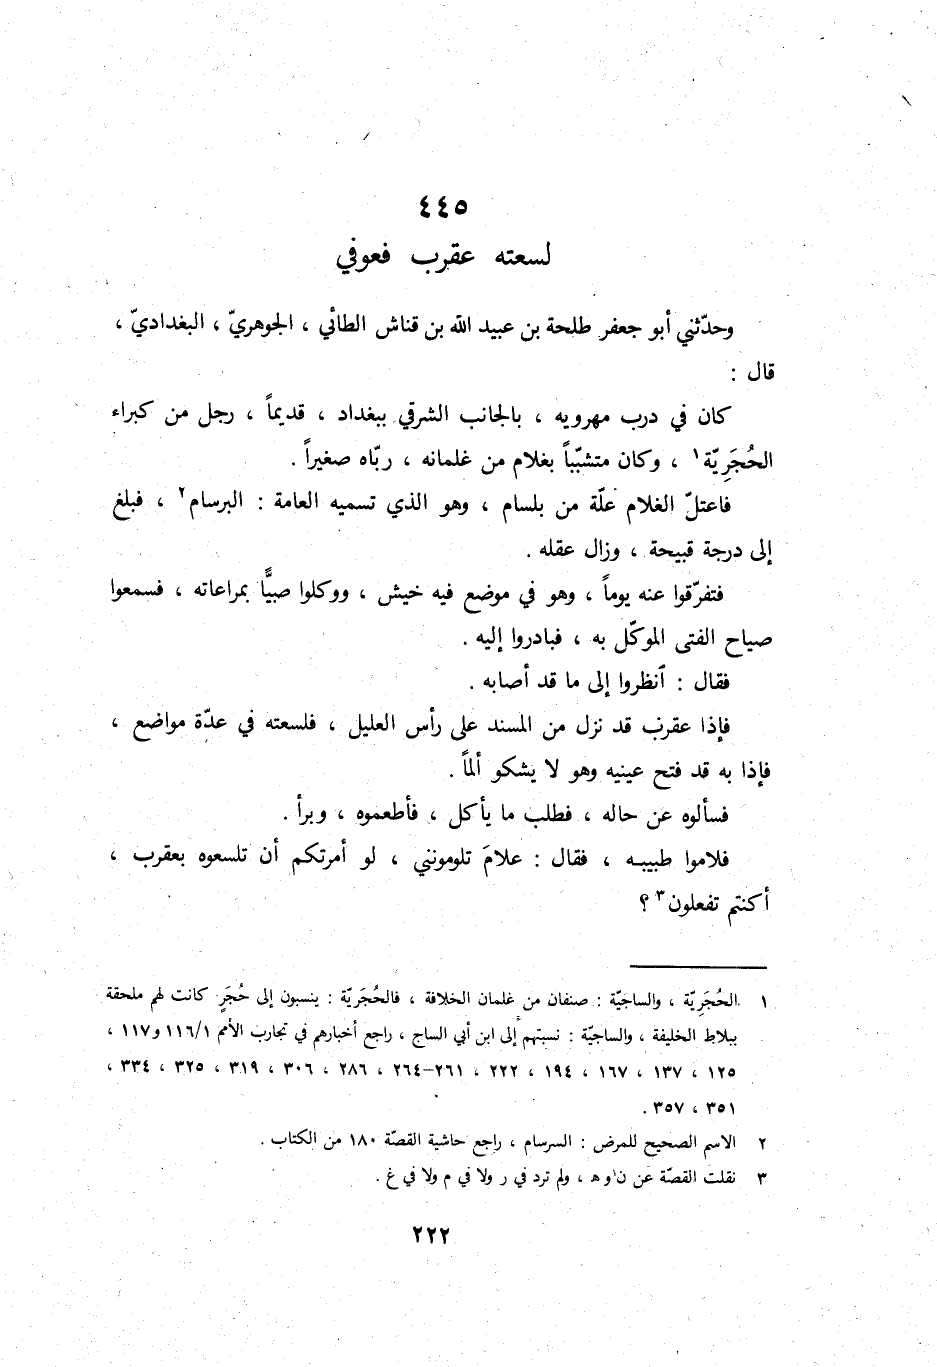 ٤٤٥
لسعته عقرب فعوفي
وحدّثني أبو جعفر طلحة بن عبيد الله بن قناش الطائي ، الجوهريّ ، البغداديّ ،
قال :
كان في درب مهرويه ، بالجانب الشرقي ببغداد ، قديماً ، رجل من كبراء
الحُجَرِيّة١ ، وكان متشبّباً بغلام من غلمانه ، ربّاه صغيراً .
فاعتلّ الغلام علّة من بلسام ، وهو الذي تسميه العامة : البرسام٢ ، فبلغ
إلى درجة قبيحة ، وزال عقله .
فتفرّقوا عنه يوماً ، وهو في موضع فيه خيش ، ووكلوا صبيًّا بمراعاته ، فسمعوا
صياح الفتى الموكّل به ، فبادروا إليه .
فقال : آنظروا إلى ما قد أصابه .
فإذا عقرب قد نزل من المسند على رأس العليل ، فلسعته في عدّة مواضع ،
فإذا به قد فتح عينيه وهو لا يشكو ألماً .
فسألوه عن حاله ، فطلب ما يأكل ، فأطعموه ، وبرأ .
فلاموا طبيبه ، فقال : علامَ تلومونني ، لو أمرتكم أن تلسعوه بعقرب ،
أكنتم تفعلون٣ ؟
١ الحُجَرِيّة ، والساجيّة : صنفان من غلمان الخلافة ، فالحُجَريّة : ينسبون إلى حُجَرٍ كانت لهم ملحقة
ببلاط الخليفة ، والساجيّة : نسبتهم إلى ابن أبي الساج ، راجع أخبارهم في تجارب الأمم ١١٦/١ و١١٧ ،
١٢٥ ، ١٣٧ ، ١٦٧ ، ١٩٤ ، ٢٢٢ ، ٢٦١–٢٦٤ ، ٢٨٦ ، ٣٠٦ ، ٣١٩ ، ٣٢٥ ، ٣٣٤ ،
٣٥١ ، ٣٥٧ .
٢ الاسم الصحيح للمرض : السرسام ، راجع حاشية القصّة ١٨٠ من الكتاب .
٣ نقلت القصّة عن ن و ه ، ولم ترد في ر ولا في م ولا في غ .
٢٢٢